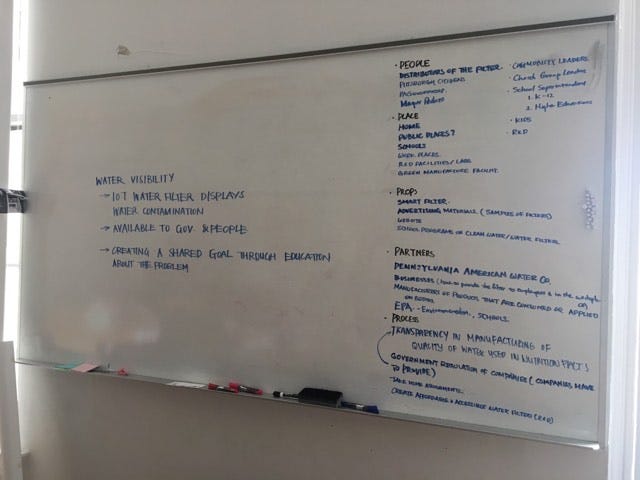 WATER VISIBILITY
→ IOT WATER FILTER DISPLAYS
WATER CONTAMINATION
→ AVAILABLE TO GOV. & PEOPLE
→ CREATING A SHARED GOAL THROUGH EDUCATION
ABOUT THE PROBLEM
· PEOPLE
DISTRIBUTORS OF THE FILTER
PITTSBURGH CITIZENS
PA Government
Mayor Peduto
· COMMUNITY LEADERS
· Church Group Leaders
· School Superintendent
1. K-12
2. Higher Education
· KIDS
· R&D
· PLACE
HOME
PUBLIC PLACES?
SCHOOLS
WORK PLACES
R&D FACILITIES/LABS
GREEN MANUFACTURE FACILITY
· PROPS
SMART FILTER
ADVERTISING MATERIALS (SAMPLES OF FILTERS)
WEBSITE
SCHOOL PROGRAMS OF CLEAN WATER/WATER FILTER
· PARTNERS
PENNSYLVANIA AMERICAN WATER CO.
BUSINESSES (how to provide the filter to employees & in the workplace
MANUFACTURERS OF PRODUCTS THAT ARE CONSUMED OR APPLIED
ON BODIES
EPA - SCHOOLS
· PROCESS
TRANSPARENCY IN MANUFACTURING OF
QUALITY OF WATER USED IN NUTRITION FACTS
GOVERNMENT REGULATION OF COMPANIES (COMPANIES HAVE
TO PROVIDE)
TAKE HOME ASSIGNMENTS
CREATE AFFORDABLE & ACCESSIBLE WATER FILTERS (R&D)